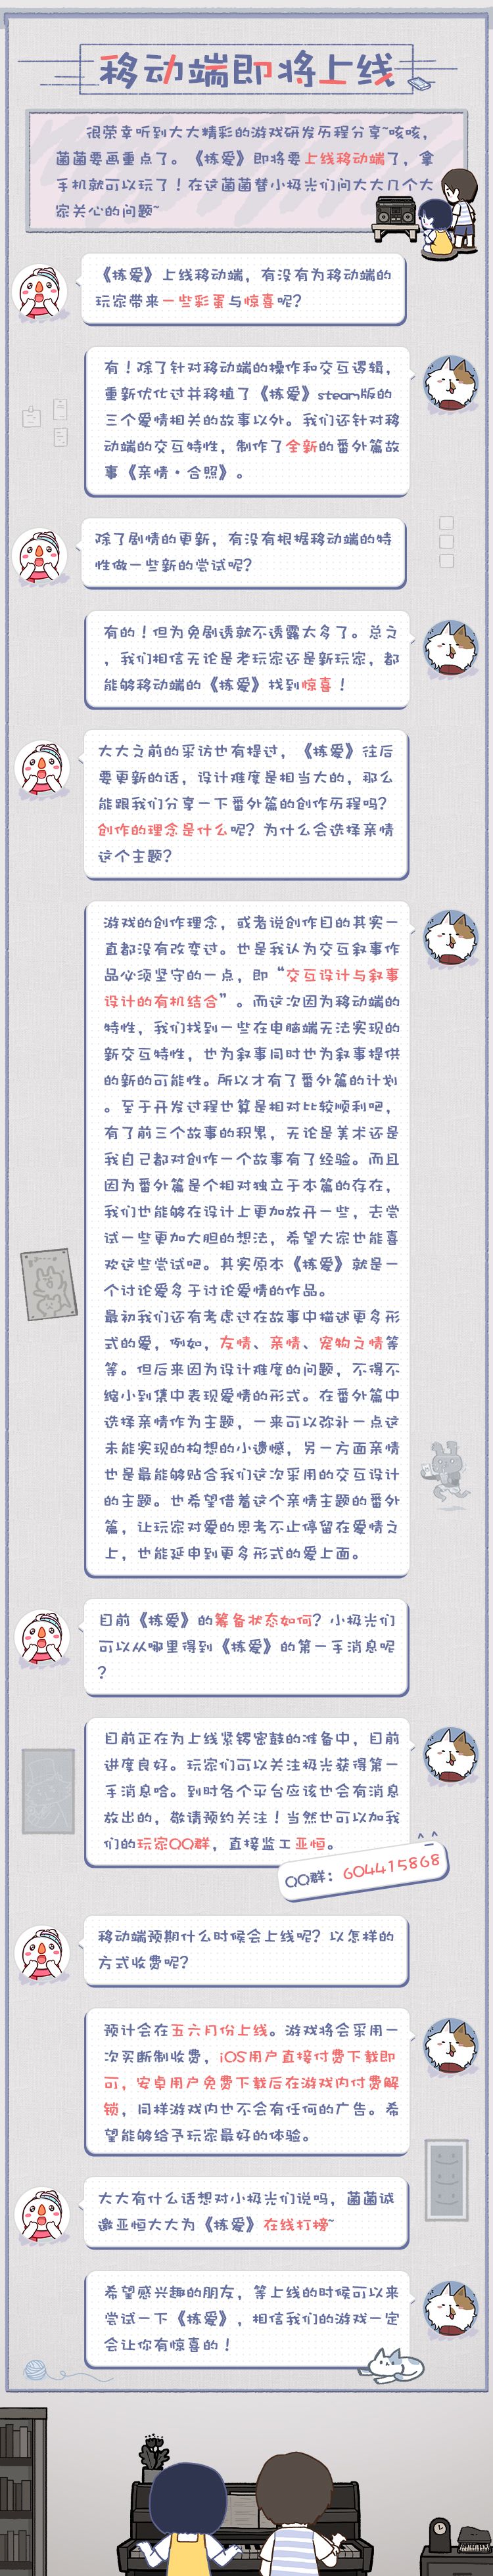 移动端即将上线
很荣幸听到大大精彩的游戏研发历程分享~咳咳，
菌菌要画重点了。《拣爱》即将要上线移动端了，拿
手机就可以玩了！在这菌菌替小极光们问大大几个大
家关心的问题~
《拣爱》上线移动端，有没有为移动端的
玩家带来一些彩蛋与惊喜呢？
有！除了针对移动端的操作和交互逻辑，
重新优化过并移植了《拣爱》steam版的
三个爱情相关的故事以外。我们还针对移
动端的交互特性，制作了全新的番外篇故
事《亲情·合照》。
除了剧情的更新，有没有根据移动端的特
性做一些新的尝试呢？
有的！但为免剧透就不透露太多了。总之
，我们相信无论是老玩家还是新玩家，都
能够移动端的《拣爱》找到惊喜！
大大之前的采访也有提过，《拣爱》往后
要更新的话，设计难度是相当大的，那么
能跟我们分享一下番外篇的创作历程吗？
创作的理念是什么呢？为什么会选择亲情
这个主题？
游戏的创作理念，或者说创作目的其实一
直都没有改变过。也是我认为交互叙事作
品必须坚守的一点，即“交互设计与叙事
设计的有机结合”。而这次因为移动端的
特性，我们找到一些在电脑端无法实现的
新交互特性，也为叙事同时也为叙事提供
的新的可能性。所以才有了番外篇的计划
。至于开发过程也算是相对比较顺利吧，
有了前三个故事的积累，无论是美术还是
我自己都对创作一个故事有了经验。而且
因为番外篇是个相对独立于本篇的存在，
我们也能够在设计上更加放开一些，去尝
试一些更加大胆的想法，希望大家也能喜
欢这些尝试吧。其实原本《拣爱》就是一
个讨论爱多于讨论爱情的作品。
最初我们还有考虑过在故事中描述更多形
式的爱，例如，友情、亲情、宠物之情等
等。但后来因为设计难度的问题，不得不
缩小到集中表现爱情的形式。在番外篇中
选择亲情作为主题，一来可以弥补一点这
未能实现的构想的小遗憾，另一方面亲情
也是最能够贴合我们这次采用的交互设计
的主题。也希望借着这个亲情主题的番外
篇，让玩家对爱的思考不止停留在爱情之
上，也能延申到更多形式的爱上面。
目前《拣爱》的筹备状态如何？小极光们
可以从哪里得到《拣爱》的第一手消息呢
？
目前正在为上线紧锣密鼓的准备中，目前
进度良好。玩家们可以关注极光获得第一
手消息哈。到时各个平台应该也会有消息
放出的，敬请预约关注！当然也可以加我
们的玩家QQ群，直接监工亚恒。
QQ群：604415868
移动端预期什么时候会上线呢？以怎样的
方式收费呢？
预计会在五六月份上线。游戏将会采用一
次买断制收费，iOS用户直接付费下载即
可，安卓用户免费下载后在游戏内付费解
锁，同样游戏内也不会有任何的广告。希
望能够给予玩家最好的体验。
大大有什么话想对小极光们说吗，菌菌诚
邀亚恒大大为《拣爱》在线打榜~
希望感兴趣的朋友，等上线的时候可以来
尝试一下《拣爱》，相信我们的游戏一定
会让你有惊喜的！